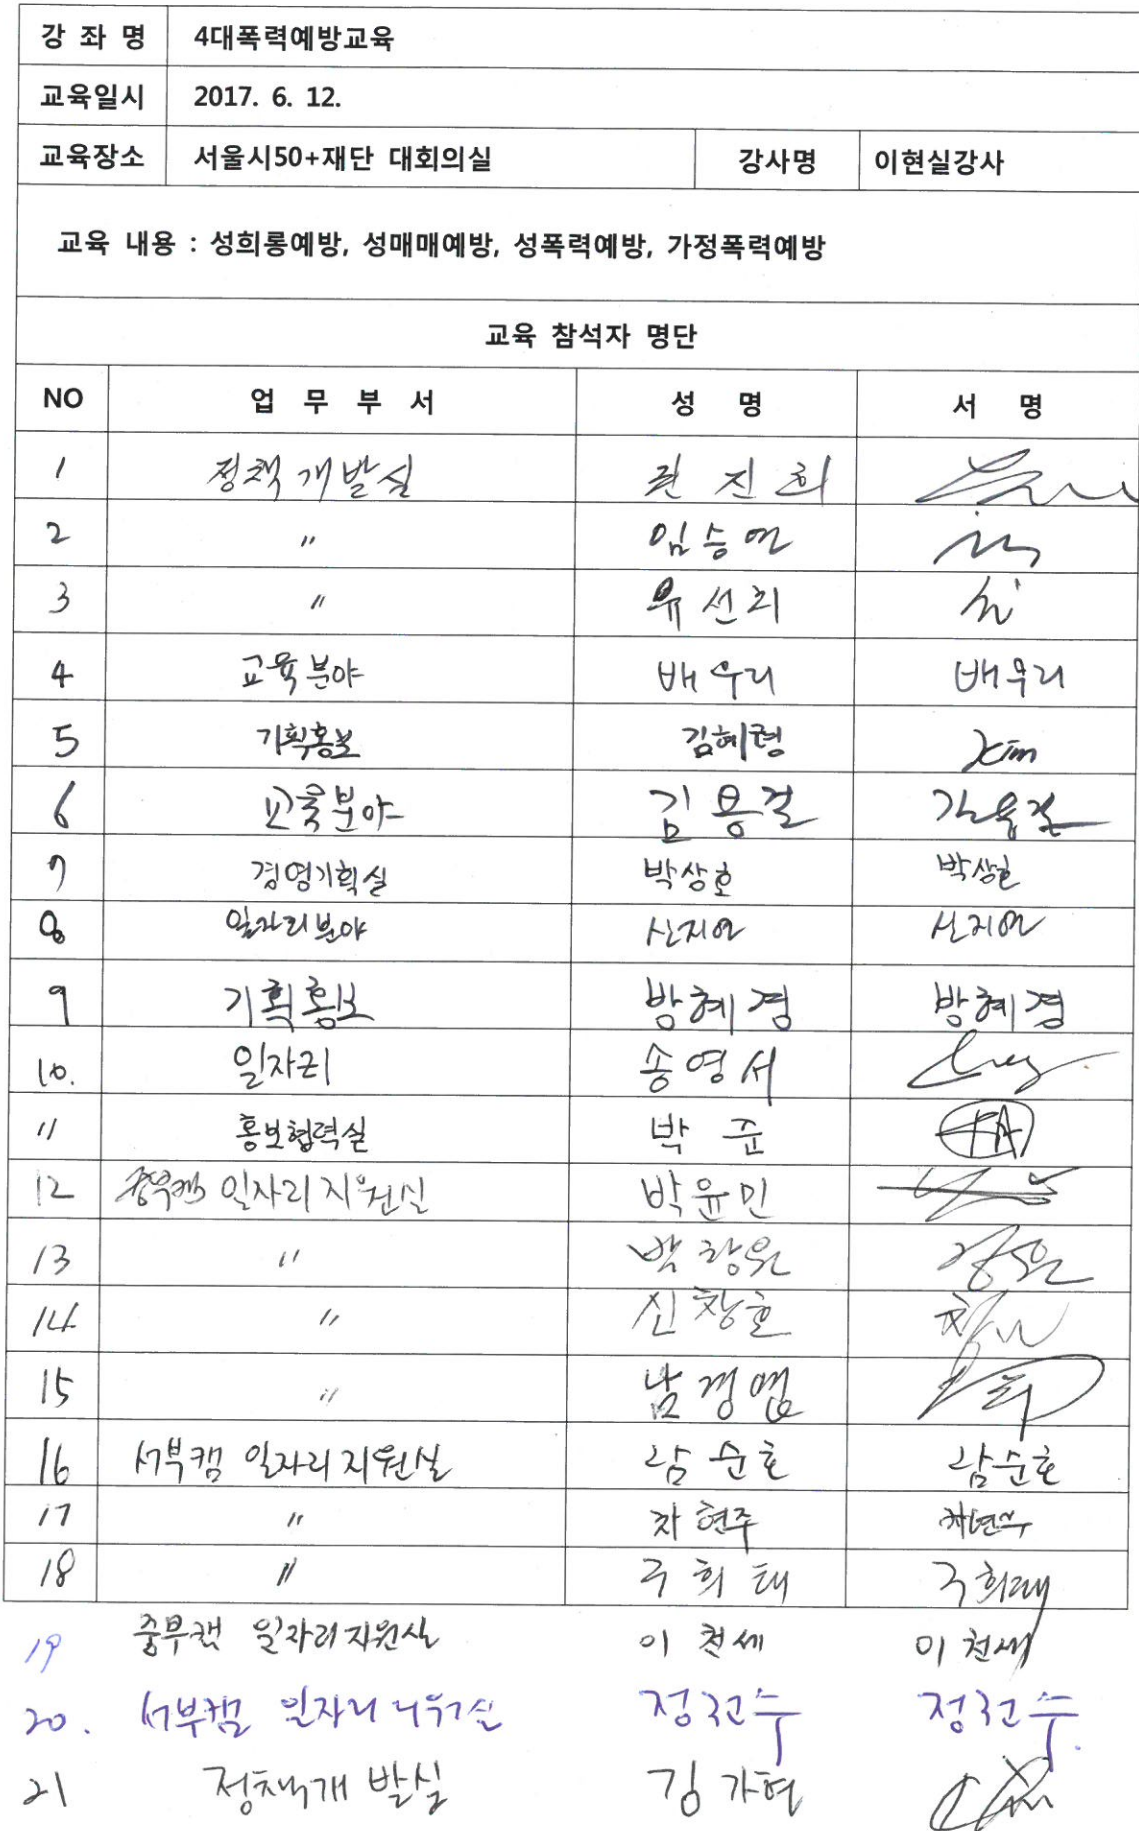 강 좌 명 4대폭력예방교육
교육일시 2017. 6. 12.
교육장소 서울시50+재단 대회의실 강사명 이현실강사
교육 내용 : 성희롱예방, 성매매예방, 성폭력예방, 가정폭력예방
교육 참석자 명단
NO 업 무 부 서 성 명 서 명
1 정책개발실 권진희
2 〃 임승연
3 〃 유선리
4 교육분야 배우리 배우리
5 기획홍보 김혜령 Kim
6 교육분야 김용걸 김용걸
7 경영기획실 박상호 박상호
8 일자리분야 신지연 신지연
9 기획홍보 방혜경 방혜경
10. 일자리 송영서
11 홍보협력실 박 준
12 중부캠 일자리지원실 박윤민
13 〃
14 〃 신창호
15 〃 남경
16 서부캠 일자리지원실 순호 순호
17 〃 차현주
18 〃 구희태 구희태
19 중부캠 일자리지원실 이천세 이천세
20. 서부캠 일자리지원실
21 정책개발실 김가현